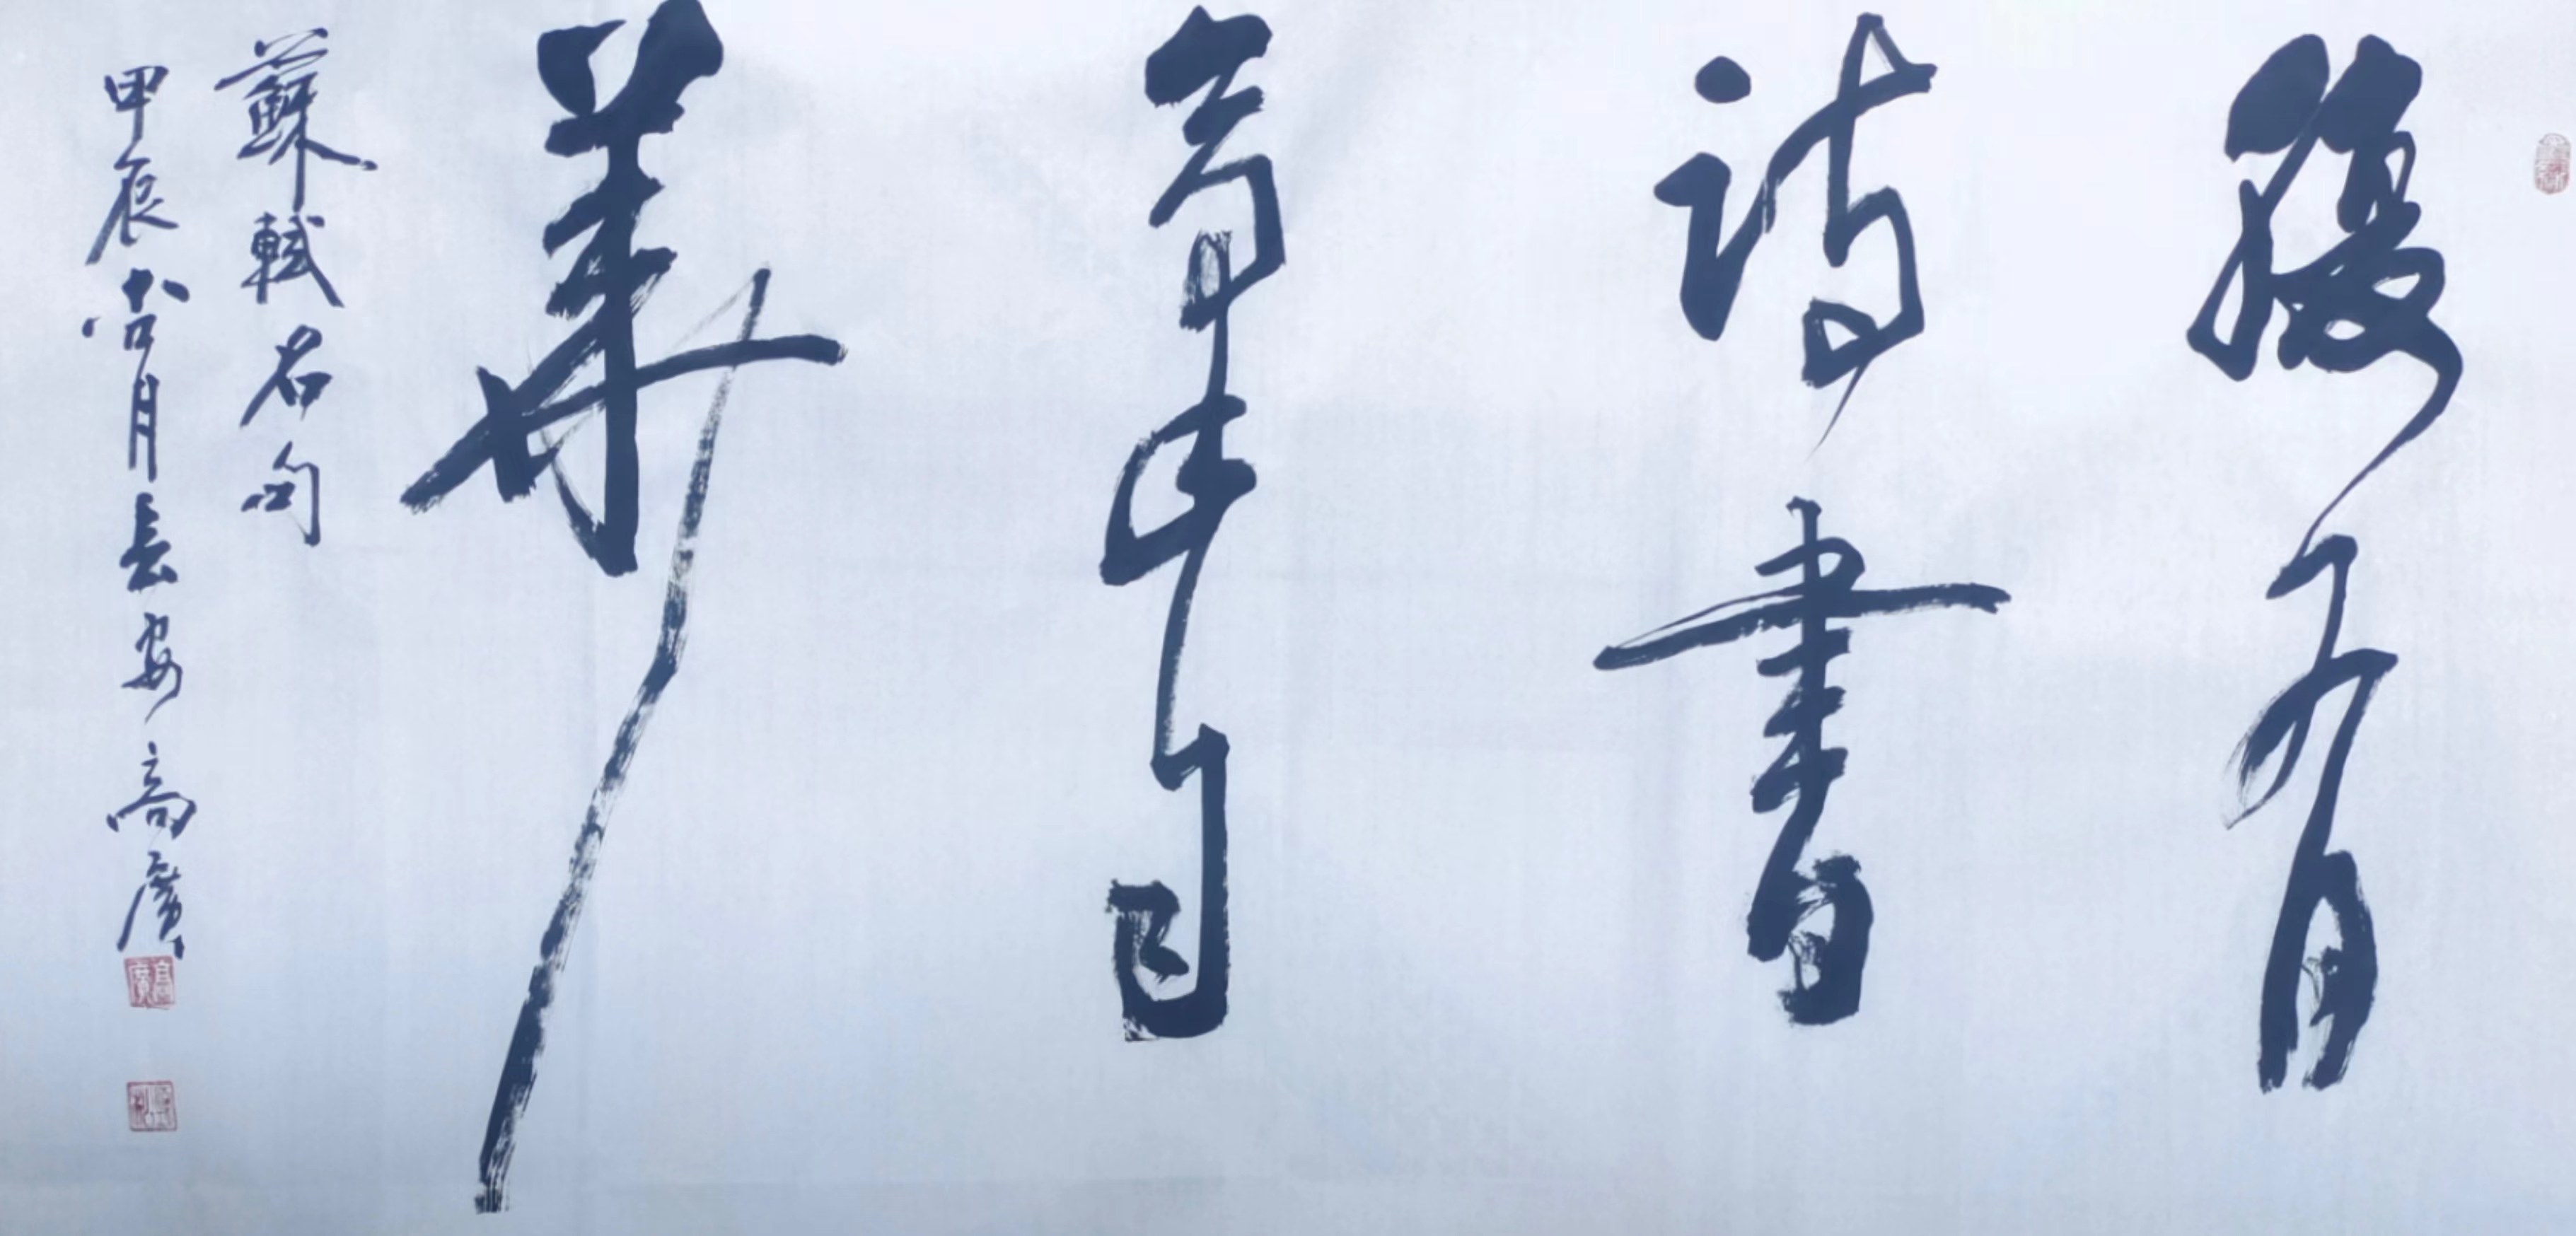 腹有
詩書
氣自
華
蘇軾名句
甲辰當月長安高廣